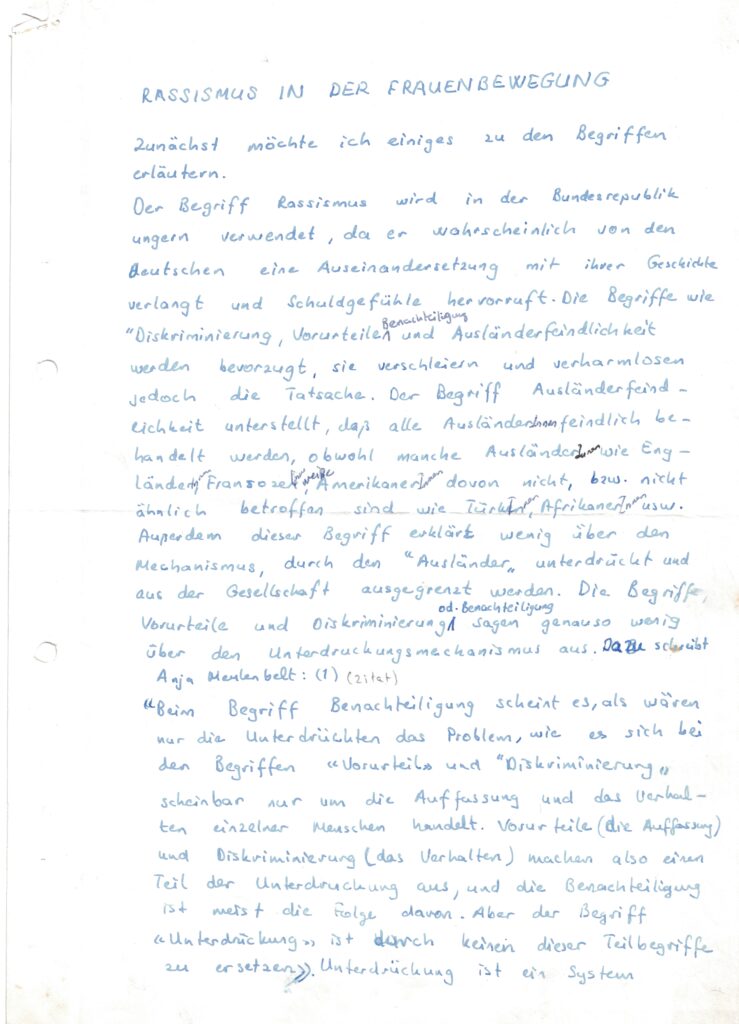 RASSISMUS IN DER FRAUENBEWEGUNG
Zunächst möchte ich einiges zu den Begriffen
erläutern.
Der Begriff Rassismus wird in der Bundesrepublik
ungern verwendet, da er wahrscheinlich von den
deutschen eine Auseinandersetzung mit ihrer Geschichte
verlangt und Schuldgefühle hervorruft. Die Begriffe wie
Benachteiligung
"Diskriminierung, Vorurteile und Ausländerfeindlichkeit
werden bevorzugt, sie verschleiern und verharmlosen
jedoch die Tatsache. Der Begriff Ausländerfeind-
lichkeit unterstellt, daß alle AusländerInnen feindlich be-
handelt werden, obwohl manche AusländerInnen wie Eng-
länderInnen, Franzosen, weiße AmerikanerInnen davon nicht, bzw. nicht
ähnlich betroffen sind wie TürkInnen, AfrikanerInnen usw.
Außerdem dieser Begriff erklärt wenig über den
Mechanismus, durch den "Ausländer„ unterdrückt und
aus der Gesellschaft ausgegrenzt werden. Die Begriffe,
od. Benachteiligung
Vorurteile und Diskriminierung sagen genauso wenig
über den Unterdruckungsmechanismus aus. Dazu schreibt
Anja Meulenbelt: (1) (zitat)
"Beim Begriff Benachteiligung scheint es, als wären
nur die Unterdrückten das Problem, wie es sich bei
den Begriffen «Vorurteil» und "Diskriminierung„
scheinbar nur um die Auffassung und das Verhal-
ten einzelner Menschen handelt. Vorurteile (die Auffassung)
und Diskriminierung (das Verhalten) machen also einen
Teil der Unterdruckung aus, und die Benachteiligung
ist meist die Folge davon. Aber der Begriff
«Unterdrückung» ist durch keinen dieser Teilbegriffe
zu ersetzen». Unterdrückung ist ein System